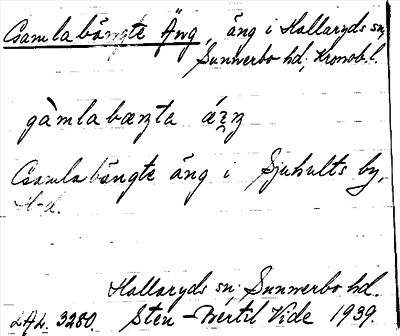 Gamla bängte Äng, äng i Hallaryds sn,
Sunnerbo hd, Kronob. l.
gàmla bæŋta ǽŋ
Gamla bängte äng i Sjuhults by,
Hallaryds sn, Sunnerbo hd.
LAL. 3280. Sten-Bertil Vide 1939.